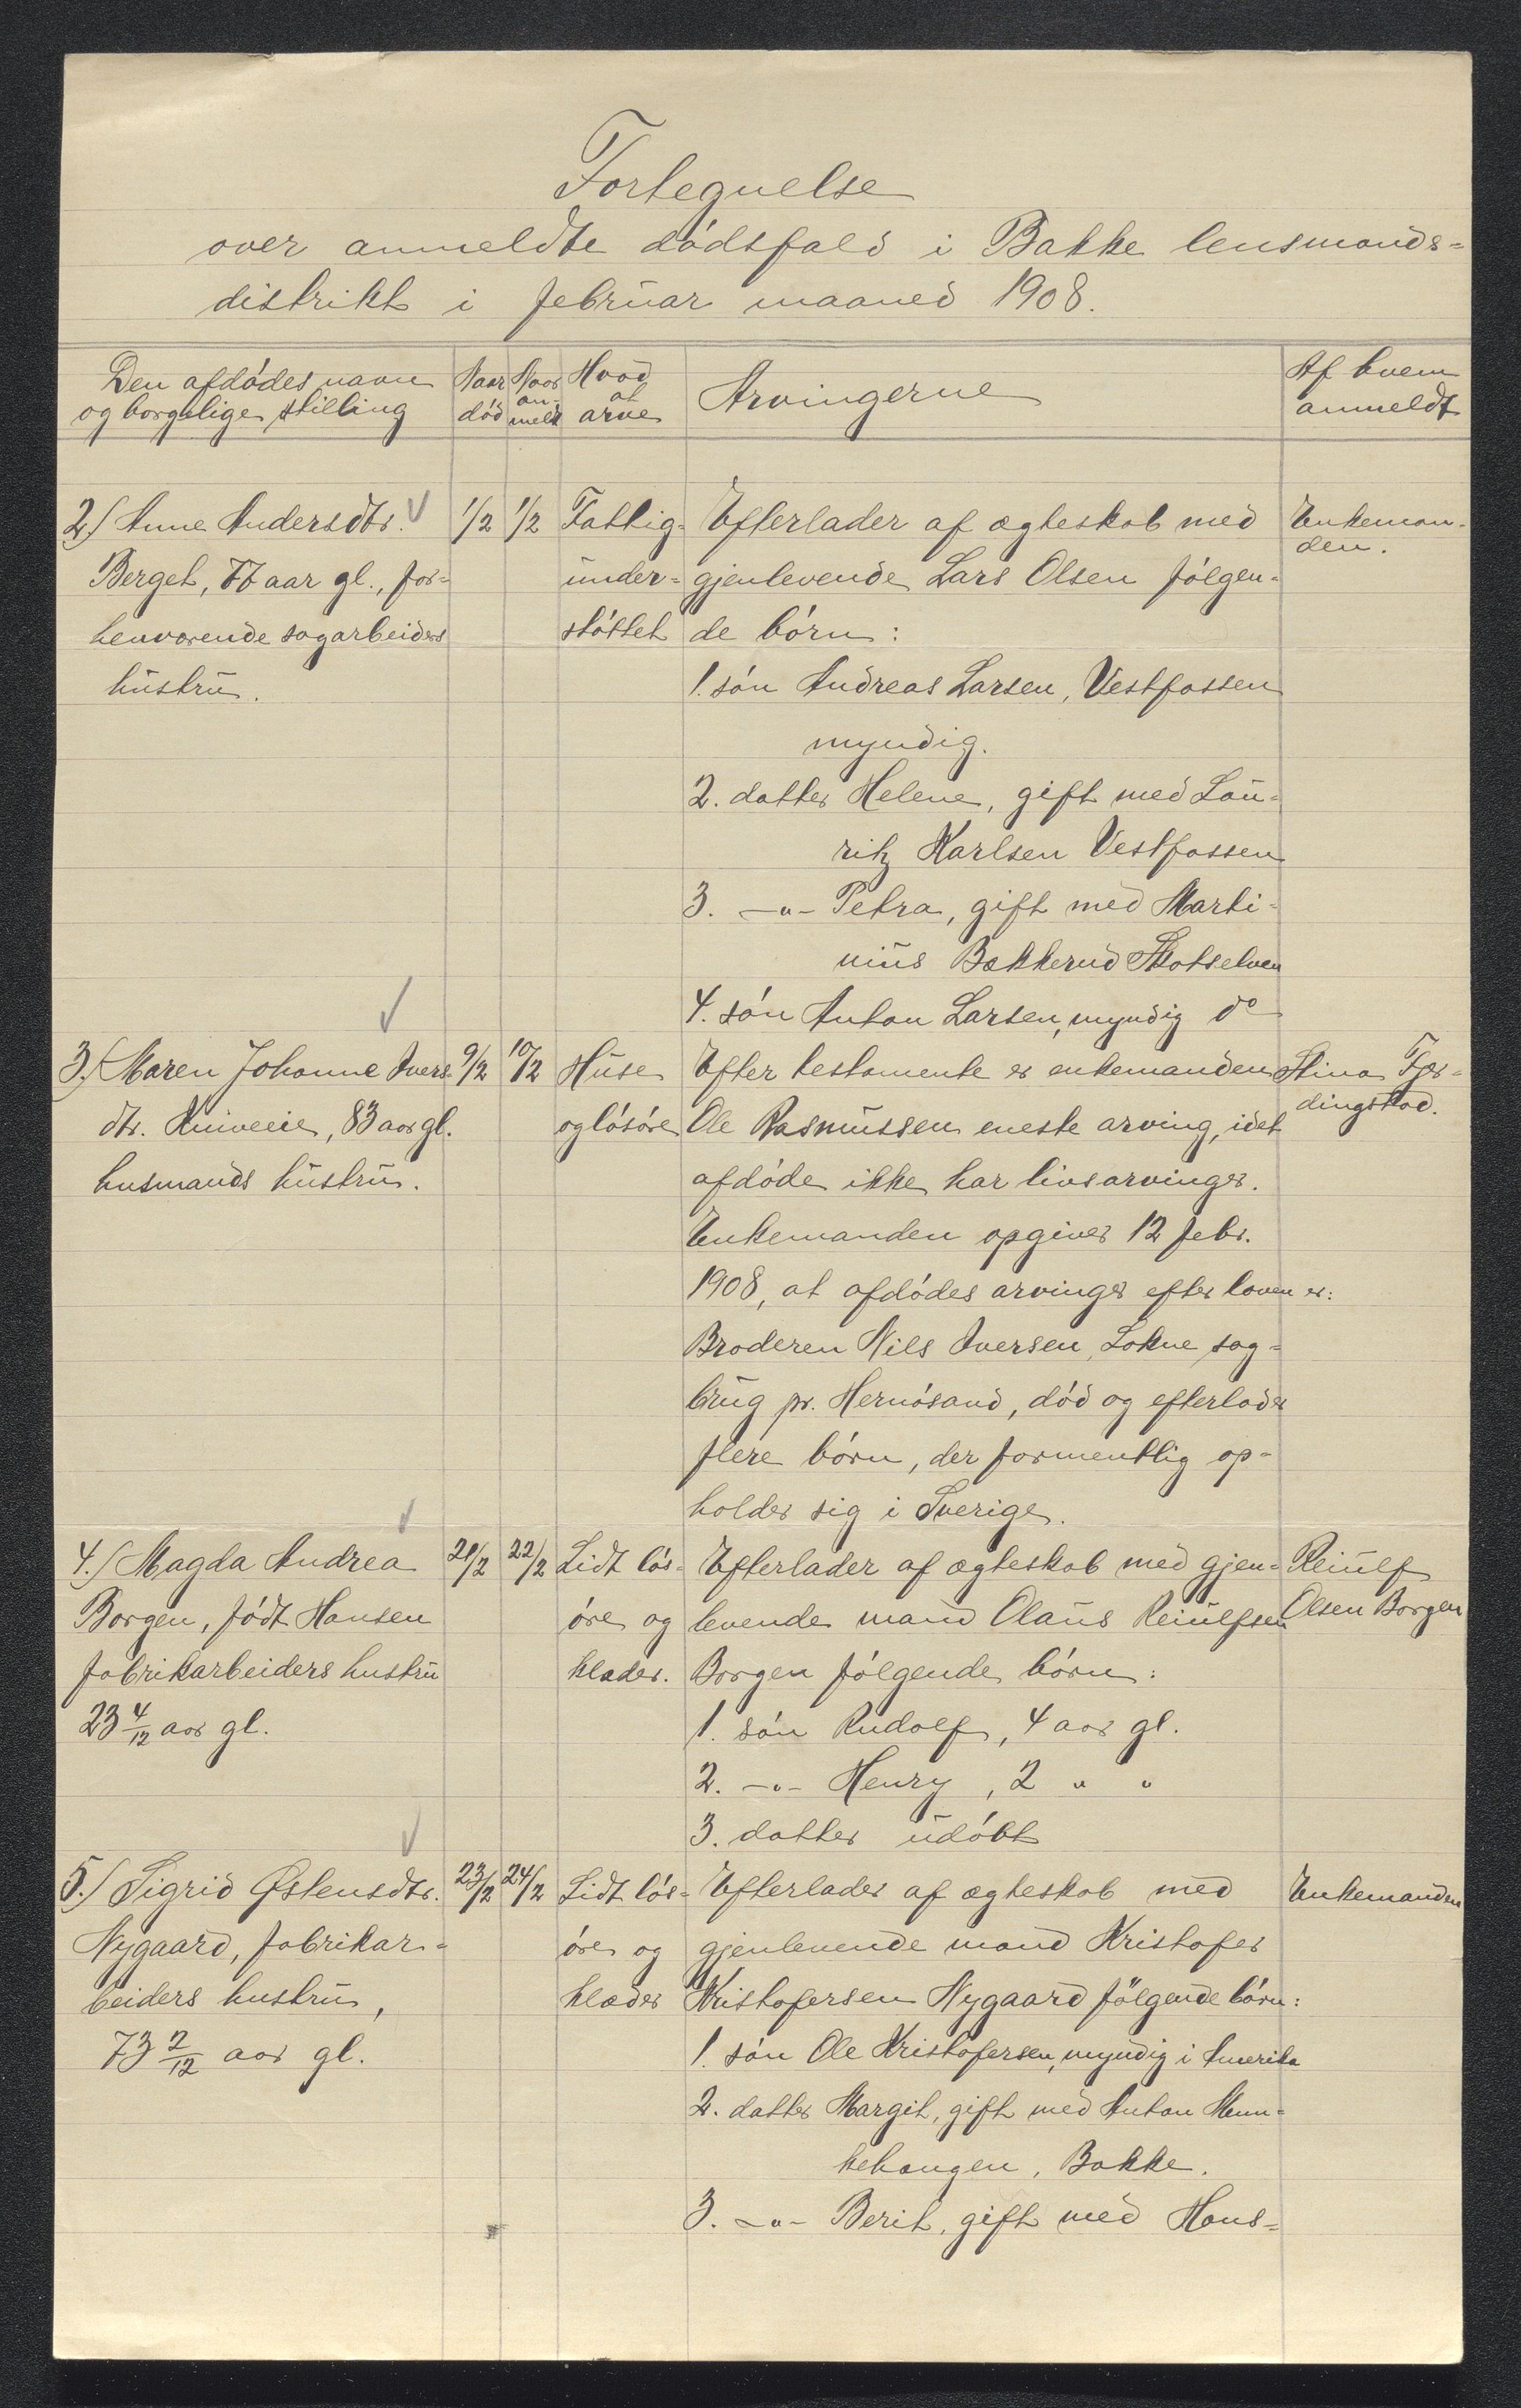 Fortegnelse
over anmeldte dødsfald i Bakke lensmands-
distrikt i februar maaned 1908.
Den afdødes navn og borgelige stilling
Naar død
Naar an-meldt
Hvad at arve
Arvingerne
Af hvem anmeldt
2.) Anne Andersdtr. 1/2 1/2 Fattig- Efterlader af ægteskab med Enkeman-
den.
Berget, 77 aar gl., for- under- gjenlevende Lars Olsen følgen-
henværende sagarbeiders støttet de børn:
hustru. 1. søn Andreas Larsen, Vestfossen
myndig.
2. datter Helene, gift med Lau-
ritz Karlsen Vestfossen
3. -"- Petra, gift med Marti-
nius Bækkerud Skotselven
4. søn Anton Larsen, myndig do
3.) Maren Johanne Ivers- 9/2 10/2 Huse Efter testamente er enkemanden Stina Fjer-
dtr. Kniveeie, 83 aar gl. og løsøre Ole Rasmussen eneste arving, idet dingstad.
husmands hustru. afdøde ikke har livsarvinger.
Enkemanden opgiver 12 febr.
1908, at afdødes arvinger efter loven er:
Broderen Nils Iversen, Lokne sag-
brug pr. Hernøsand, død og efterlader
flere børn, der formentlig op-
holder sig i Sverige.
4.) Magda Andrea 21/2 22/2 Lidt løs- Efterlader af ægteskab med gjen- Reiulf
Borgen, født Hansen øre og levende mand Olaus Reiulfsen Olsen Borgen
fabrikarbeiders hustru klæder. Borgen følgende børn:
23 4/12 aar gl. 1. søn Rudolf, 4 aar gl.
2. -"- Henry, 2 " "
3. datter udøbt
5.) Sigrid Østensdtr. 23/2 24/2 Lidt løs- Efterlader af ægteskab med Enkemanden
Nygaard, fabrikar- øre og gjenlevende mand Kristofer
beiders hustru, klæder Kristofersen Nygaard følgende børn:
73 2/12 aar gl. 1. søn Ole Kristofersen, myndig i Amerika
2. datter Margit, gift med Anton Mun-
kehaugen, Bakke.
3. -"- Berit, gift med Hans-